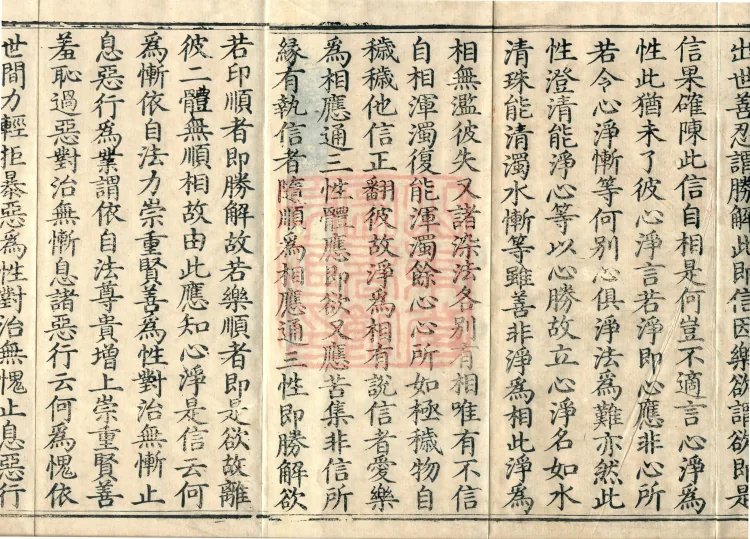 出世善忍謂勝解此即信因樂欲謂欲即是
信果確陳此信自相是何豈不適言心淨為
性此猶未了彼心淨言若淨即心應非心所
若令心淨慚等何別心俱淨法為難亦然此
性澄清能淨心等以心勝故立心淨名如水
清珠能清濁水慚等雖善非淨為相此淨為
相無濫彼失又諸染法各別有相唯有不信
自相渾濁復能渾濁餘心心所如極穢物自
穢穢他信正翻彼故淨為相有說信者愛樂
為相應通三性體應即欲又應苦集非信所
緣有執信者隨順為相應通三性即勝解欲
若印順者即勝解故若樂順者即是欲故離
彼二體無順相故由此應知心淨是信云何
為慚依自法力崇重賢善為性對治無慚止
息惡行為業謂依自法尊貴增上崇重賢善
羞恥過惡對治無慚息諸惡行云何為愧依
世間力輕拒暴惡為性對治無愧止息惡行